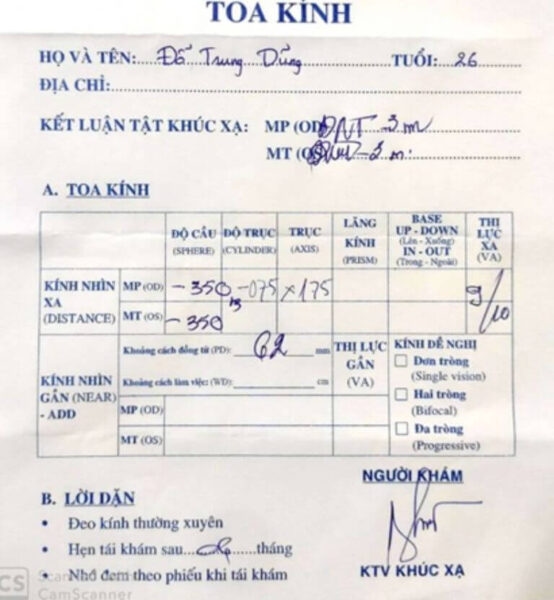 TOA KÍNH
HỌ VÀ TÊN: Đỗ Trung Dũng TUỔI: 26
ĐỊA CHỈ:
KẾT LUẬN TẬT KHÚC XẠ: MP (OD) ĐNT 3m
MT (OS) ĐNT 3m
A. TOA KÍNH
ĐỘ CẦU (SPHERE) ĐỘ TRỤ (CYLINDER) TRỤC (AXIS) LĂNG KÍNH (PRISM) BASE UP - DOWN (Lên - Xuống) IN - OUT (Trong - Ngoài) THỊ LỰC XA (VA)
KÍNH NHÌN XA (DISTANCE) MP (OD) -350 -075 x 175 9/10
MT (OS) -350
KÍNH NHÌN GẦN (NEAR) - ADD
Khoảng cách đồng tử (PD): 62 mm THỊ LỰC GẦN (VA) KÍNH ĐỀ NGHỊ
Khoảng cách làm việc: (WD): cm
MP (OD)
MT (OS)
Đơn tròng
(Single vision)
Hai tròng
(Bifocal)
Đa tròng
(Progressive)
NGƯỜI KHÁM
B. LỜI DẶN
• Đeo kính thường xuyên
• Hẹn tái khám sau 06 tháng
• Nhớ đem theo phiếu khi tái khám
KTV KHÚC XẠ
CS
CamScanner